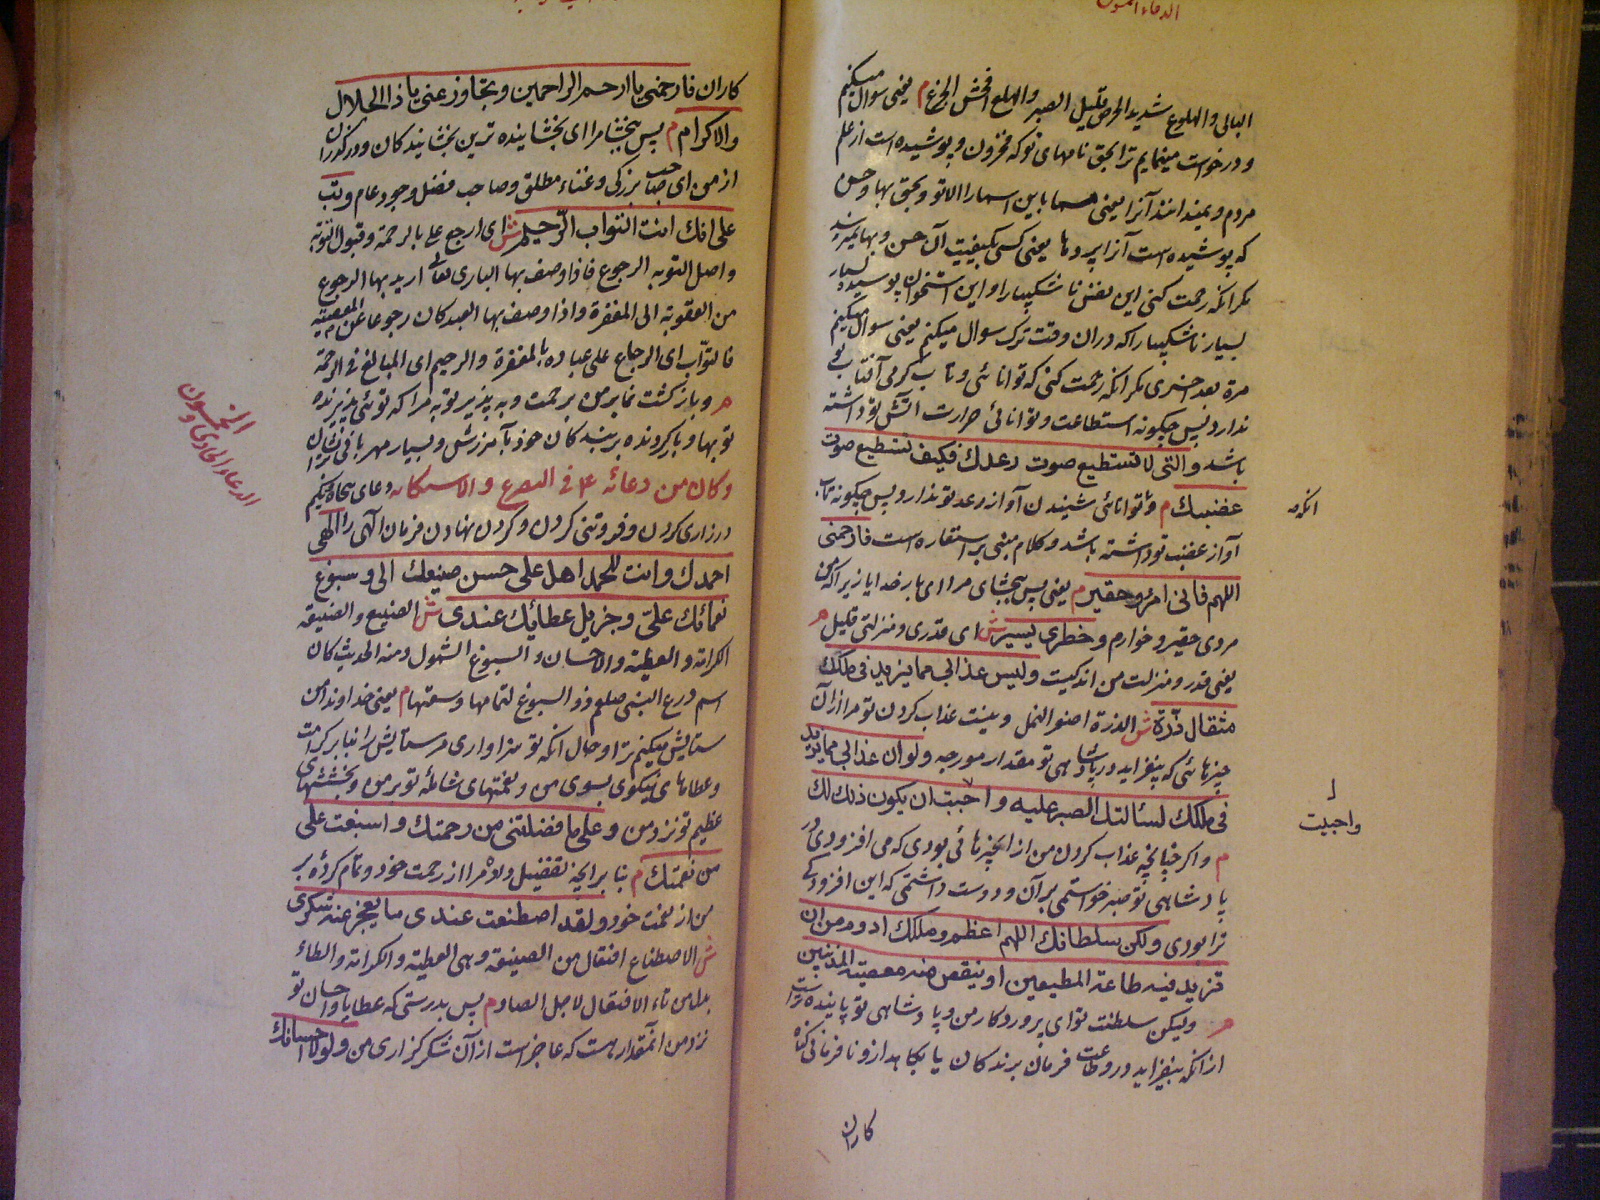 الدعاء الخمسون
البالی والهلوع شدید الحرص قلیل الصبر والهلع افحش الجزع م یعنی سوال میکنم
و درخواست مینمایم ترا بحق نامهای تو که مخزون و پوشیده است از علم
مردم و نمیدانند آنرا یعنی همه باین اسمها را الا تو و بحق بها و حسن
که پوشیده است آنرا پرده ها یعنی کسی بکیفیت آن حسن و بها نمیرسد
مکر انکه رحمت کنی این نفس ناشکیبا را و این استخوان پوسیده
بسیار ناشکیبا را که دران وقت ترک سوال میکنم یعنی سوال میکنم
مرة بعد اخری مکر انکه رحمت کنی که توانائی و تاب کرمی آفتاب
ندارد پس چکونه استطاعت و توانائی حرارت آتش تو داشته
باشد والتی لا تستطیع صوت رعدك فکیف تستطیع صوت
غضبك م و توانائی شنیدن آواز رعد تو ندارد پس چکونه تاب
آواز غضب تو داشته باشد و کلام مبنی بر استعاره است فارحمنی
اللهم فانی امرؤ حقیر م یعنی پس ببخشای مرا ای بار خدایا زیرا که من
مردی حقیر و خوارم و خطری یسیر ش ای قدری و منزلتی قلیل م
یعنی قدر و منزلت من اندکیت ولیس عذابی مما یزید فی ملکك
مثقال ذرّة ش الذرة اصغر النمل و نیست عذاب کردن تو مرا ازان
چیزهائی که بیفزاید در پادشاهی تو مقدار مورچه ولو ان عذابی مما یزید
فی ملکك لسئالتك الصبر علیه و احببت ان یکون ذلك لك
م و اکر چنانچه عذاب کردن من از انچیزهائی بودی که می افزودی در
پادشاهی تو صبر خواستمی بر آن و دوست داشتمی که این افزودکی
ترا بودی ولکن سلطانك اللهم اعظم و ملکك ادوم من ان
تزید فیه طاعة المطیعین او ینقص منه معصیة المذنبین
م ولیکن سلطنت تو ای پروردکار من و پادشاهی تو پاینده تراست
از انکه بیفزاید در و طاعت فرمان برندکان یا بکاهد ازو نافرمانی کناه
کاران
انکه
واحببت
کاران فارحمنی یا ارحم الراحمین و تجاوز عنی یا ذا الجلال
والاکرام م پس ببخشا مرا ای بخشاینده ترین بخشایندکان و درکذران
از من ای صاحب بزرکی و غناء مطلق و صاحب فضل وجود عام و تب
علی انك انت التواب الرّحیم ش ای ارجع علی بالرحمة و قبول التوبة
و اصل التوبه الرجوع فاذا وصف بها الباری تعالی ارید بها الرجوع
من العقوبة الی المغفرة و اذا وصف بها العبد کان رجوعا عن المعصیة
فالتوّاب ای الرجاع علی عباده بالمغفرة والرحیم ای المبالغ فی الرحمة
م و بازکشت نما بر من برحمت و بپذیر توبه مرا که توئی پذیرنده
توبها و بازکردنده بر بندکان خود بآمرزش و بسیار مهربانی بر ایشان
و کان من دعائه ع فی التضرع والاستکانه دعای پنجاه و یکم
در زاری کردن و فروتنی کردن و کردن نهادن فرمان آلهی را الهی
احمدك وانت للحمد اهل علی حسن صنیعك الی و سبوغ
نعمائك علیّ و جزیل عطائك عندی ش الصنیع والصنیعة
الکرامة والعطیة والاحسان والسبوغ الشمول ومنه الحدیث کان
اسم درع النبی صلعم ذو السبوغ لتمامها وسعتها م یعنی خداوندا من
ستایش میکنم ترا و حال انکه تو سزاواری مر ستایش را بنابر کرامت
و عطاهای نیکوی بسوی من و نعمتهای شامله تو بر من و بخششهای
عظیم تو نزد من و علی ما فضلتنی من رحمتك واسبغت علی
من نعمتك م بنا بر انچه تفضیل داده مرا از رحمت خود و تمام کردۀ بر
من از نعمت خود ولقد اصطنعت عندی ما یعجز عنه شکری
ش الاصطناع افتعال من الصنیعة وهی العطیة والکرامة والطاء
بدل من تاء الافتعال لاجل الصاد م پس بدرستی که عطایا و احسان تو
نزد من آنمقدار هست که عاجز است از آن شکرکزاری من ولولا احسانك
الدعاء الحادی و الخمسون